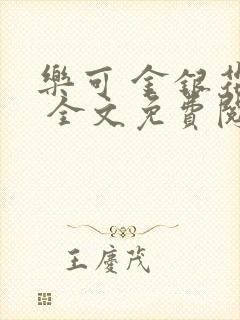 樂可 金銀花
全文免費閱
王慶茂